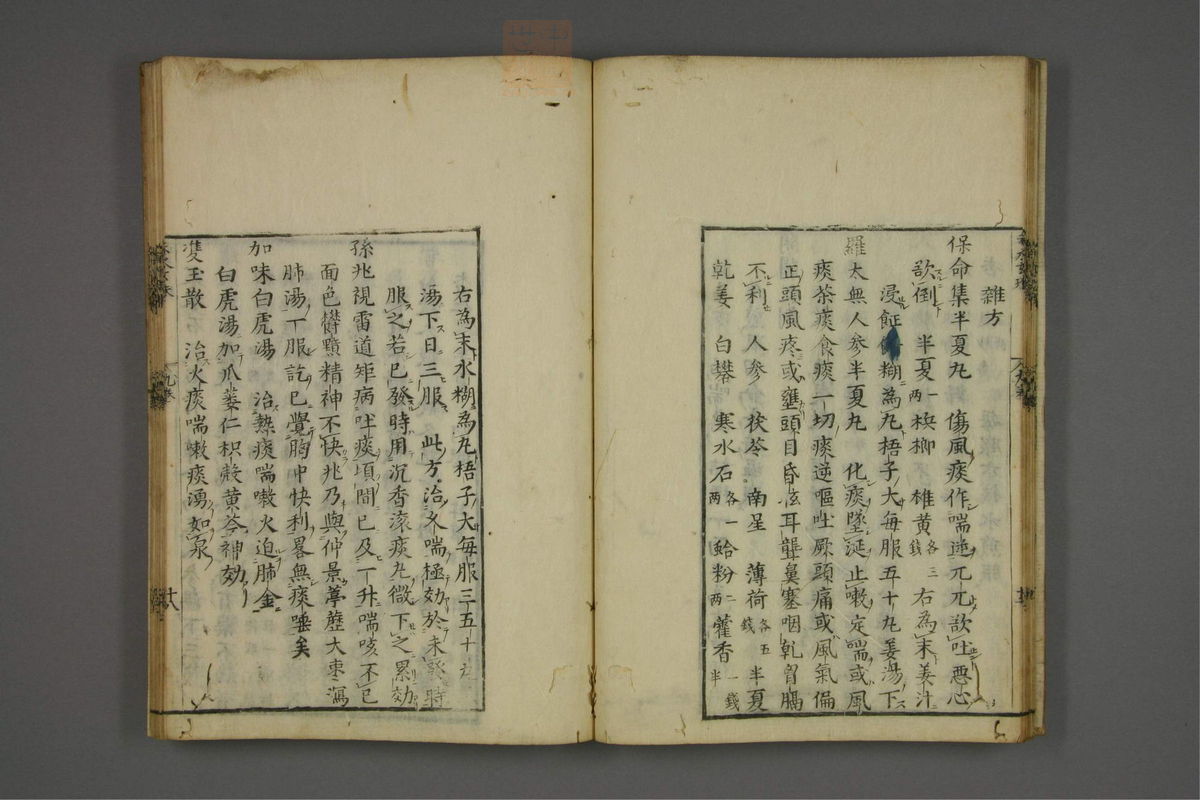 雜方
保命集半夏丸 傷風痰作喘逆兀兀欲吐惡心
欲倒 半夏一兩 梹榔 雄黄各三錢 右為末姜汁
浸餅糊為丸梧子大每服五十丸姜湯下
羅太無人參半夏丸 化痰墜涎止嗽定喘或風
痰茶痰食痰一切痰逆嘔吐厥頭痛或風氣偏
正頭風疼或壅頭目昏㫬耳聾鼻塞咽乾胷膈
不利 人參 茯苓 南星 薄荷各五錢 半夏
乾姜 白礬 寒水石各一兩 蛤粉二兩 藿香一錢半
右為末水糊為丸梧子大每服三五十丸
湯下日三服 此方治久喘極効於未發時
服之若已發時用沉香滚痰丸微下之累効
孫兆視雷道矩病吐痰頃間已及一升喘咳不已
面色欝黯精神不快兆乃與仲景葶藶大棗瀉
肺湯一服訖已覺胸中快利畧無痰唾矣
加味白虎湯 治熱痰喘嗽火迫肺金
白虎湯加瓜蔞仁枳殻黄芩神効
雙玉散 治火痰喘嗽痰湧如泉
九卷